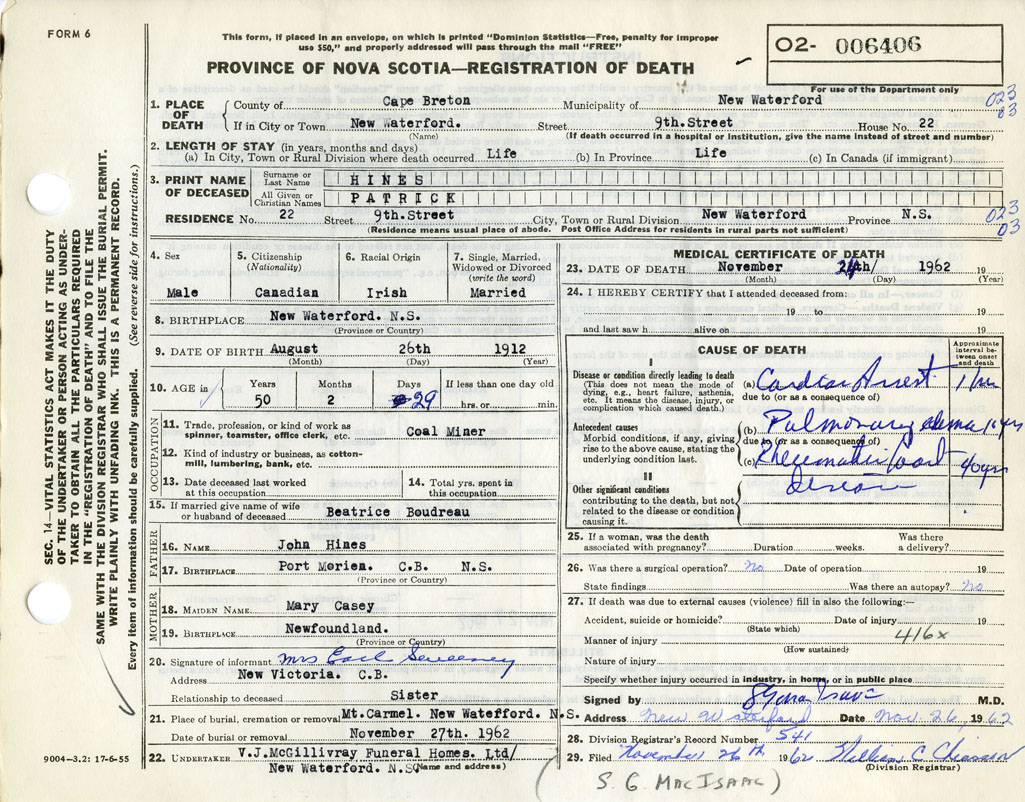 FORM 6
This form, if placed in an envelope, on which is printed "Dominion Statistics—Free, penalty for improper
use $50," and properly addressed will pass through the mail "FREE"
PROVINCE OF NOVA SCOTIA—REGISTRATION OF DEATH
02- 006406
For use of the Department only
023
03
1. PLACE OF DEATH
County of Cape Breton Municipality of New Waterford
If in City or Town New Waterford. Street 9th.Street House No. 22
(Name) (If death occurred in a hospital or institution, give the name instead of street and number)
2. LENGTH OF STAY (in years, months and days)
(a) In City, Town or Rural Division where death occurred Life (b) In Province Life (c) In Canada (if immigrant)
3. PRINT NAME OF DECEASED
Surname or Last Name HINES
All Given or Christian Names PATRICK
RESIDENCE No. 22 Street 9th.Street City, Town or Rural Division New Waterford Province N.S.
023
03
(Residence means usual place of abode. Post Office Address for residents in rural parts not sufficient)
4. Sex
Male
5. Citizenship (Nationality)
Canadian
6. Racial Origin
Irish
7. Single, Married, Widowed or Divorced (write the word)
Married
8. BIRTHPLACE New Waterford. N.S.
(Province or Country)
9. DATE OF BIRTH August 26th 1912
(Month) (Day) (Year)
10. AGE in
Years Months Days If less than one day old
50 2 29 hrs. or min.
OCCUPATION
11. Trade, profession, or kind of work as spinner, teamster, office clerk, etc. Coal Miner
12. Kind of industry or business, as cotton-mill, lumbering, bank, etc.
13. Date deceased last worked at this occupation
14. Total yrs. spent in this occupation
15. If married give name of wife or husband of deceased Beatrice Boudreau
FATHER
16. NAME John Hines
17. BIRTHPLACE Port Morien. C.B. N.S.
(Province or Country)
MOTHER
18. MAIDEN NAME Mary Casey
19. BIRTHPLACE Newfoundland.
(Province or Country)
20. Signature of informant Mrs Earl Sweeney
Address New Victoria. C.B.
Relationship to deceased Sister
21. Place of burial, cremation or removal Mt.Carmel. New Watefford. N.S.
Date of burial or removal November 27th. 1962
22. UNDERTAKER V.J.McGillivray Funeral Homes. Ltd/
New Waterford. N.S. (Name and address)
MEDICAL CERTIFICATE OF DEATH
23. DATE OF DEATH November 24th/ 1962 19
(Month) (Day) (Year)
24. I HEREBY CERTIFY that I attended deceased from:
19 to 19
and last saw h alive on 19
CAUSE OF DEATH
Approximate interval between onset and death
I
Disease or condition directly leading to death
(This does not mean the mode of dying, e.g., heart failure, asthenia, etc. It means the disease, injury, or complication which caused death.)
(a) Cardiac Arrest 1 hr
due to (or as a consequence of)
Antecedent causes
Morbid conditions, if any, giving rise to the above cause, stating the underlying condition last.
(b) Pulmonary edema
due to (or as a consequence of)
(c) Rheumatic heart disease 40 yrs
II
Other significant conditions
contributing to the death, but not related to the disease or condition causing it.
25. If a woman, was the death associated with pregnancy? Duration weeks. Was there a delivery?
26. Was there a surgical operation? no Date of operation 19
State findings Was there an autopsy? no
27. If death was due to external causes (violence) fill in also the following:—
Accident, suicide or homicide? Date of injury 19
(State which) 416x
Manner of injury
(How sustained)
Nature of injury
Specify whether injury occurred in industry, in home, or in public place
Signed by M.D.
Address New Waterford Date Nov. 26, 1962
28. Division Registrar's Record Number 541
29. Filed November 26th 1962 William C Chiasson
(Division Registrar)
(S. G. MACISAAC)
9004—3.2: 17-6-55
SEC. 14—VITAL STATISTICS ACT MAKES IT THE DUTY
OF THE UNDERTAKER OR PERSON ACTING AS UNDER-
TAKER TO OBTAIN ALL THE PARTICULARS REQUIRED
IN THE "REGISTRATION OF DEATH" AND TO FILE THE
SAME WITH THE DIVISION REGISTRAR WHO SHALL ISSUE THE BURIAL PERMIT.
WRITE PLAINLY WITH UNFADING INK. THIS IS A PERMANENT RECORD.
Every item of information should be carefully supplied. (See reverse side for instructions.)